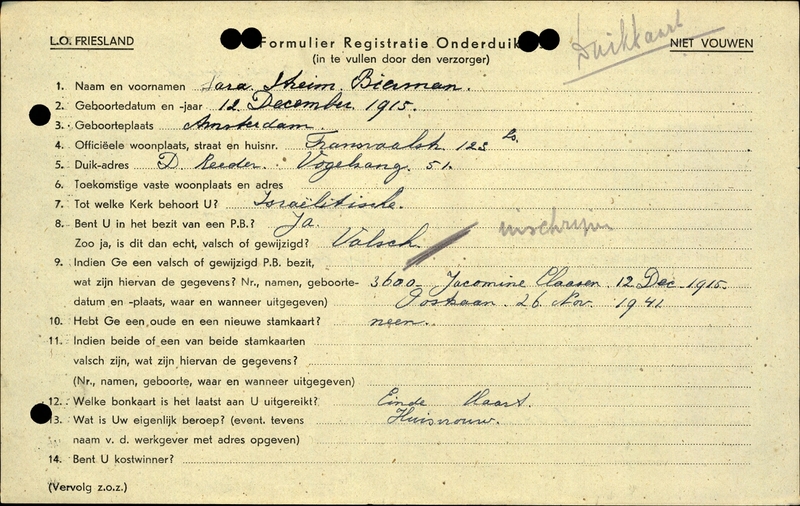 Duikkaart
L.O. FRIESLAND Formulier Registratie Onderduik NIET VOUWEN
(in te vullen door den verzorger)
1. Naam en voornamen Sara Bierman.
2. Geboortedatum en -jaar 12 December 1915.
3. Geboorteplaats Amsterdam
4. Officiëele woonplaats, straat en huisnr. Transvaalstr. 123 hs.
5. Duik-adres D. Reeder. Vogelsang. 51.
6. Toekomstige vaste woonplaats en adres
7. Tot welke Kerk behoort U? Israëlitische.
8. Bent U in het bezit van een P.B.? Ja. inschrijven
Zoo ja, is dit dan echt, valsch of gewijzigd? Valsch.
9. Indien Ge een valsch of gewijzigd P.B. bezit,
wat zijn hiervan de gegevens? Nr., namen, geboorte- 3600 Jacomine Claasen 12 Dec 1915.
datum en -plaats, waar en wanneer uitgegeven) 26 Nov. 1941
10. Hebt Ge een oude en een nieuwe stamkaart? neen.
11. Indien beide of een van beide stamkaarten
valsch zijn, wat zijn hiervan de gegevens?
(Nr., namen, geboorte, waar en wanneer uitgegeven)
12. Welke bonkaart is het laatst aan U uitgereikt? Einde Maart.
13. Wat is Uw eigenlijk beroep? (event. tevens Huisvrouw.
naam v. d. werkgever met adres opgeven)
14. Bent U kostwinner?
(Vervolg z.o.z.)